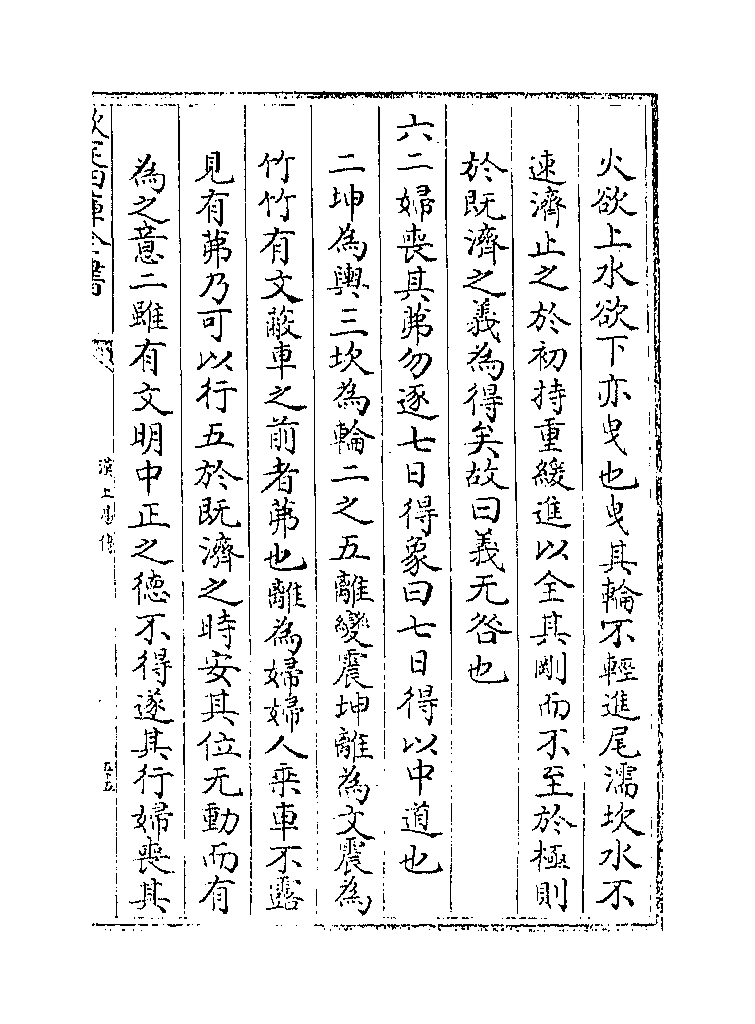 火欲上水欲下亦曳也曳其輪不輕進尾濡坎水不
速濟止之於初持重緩進以全其剛而不至於極則
於既濟之義為得矣故曰義无咎也
六二婦喪其茀勿逐七日得象曰七日得以中道也
二坤為輿三坎為輪二之五離變震坤離為文震為
竹竹有文蔽車之前者茀也離為婦婦人乗車不露
見有茀乃可以行五於既濟之時安其位无動而有
為之意二雖有文明中正之德不得遂其行婦喪其
欽定四庫全書
漢上易傳
五十五